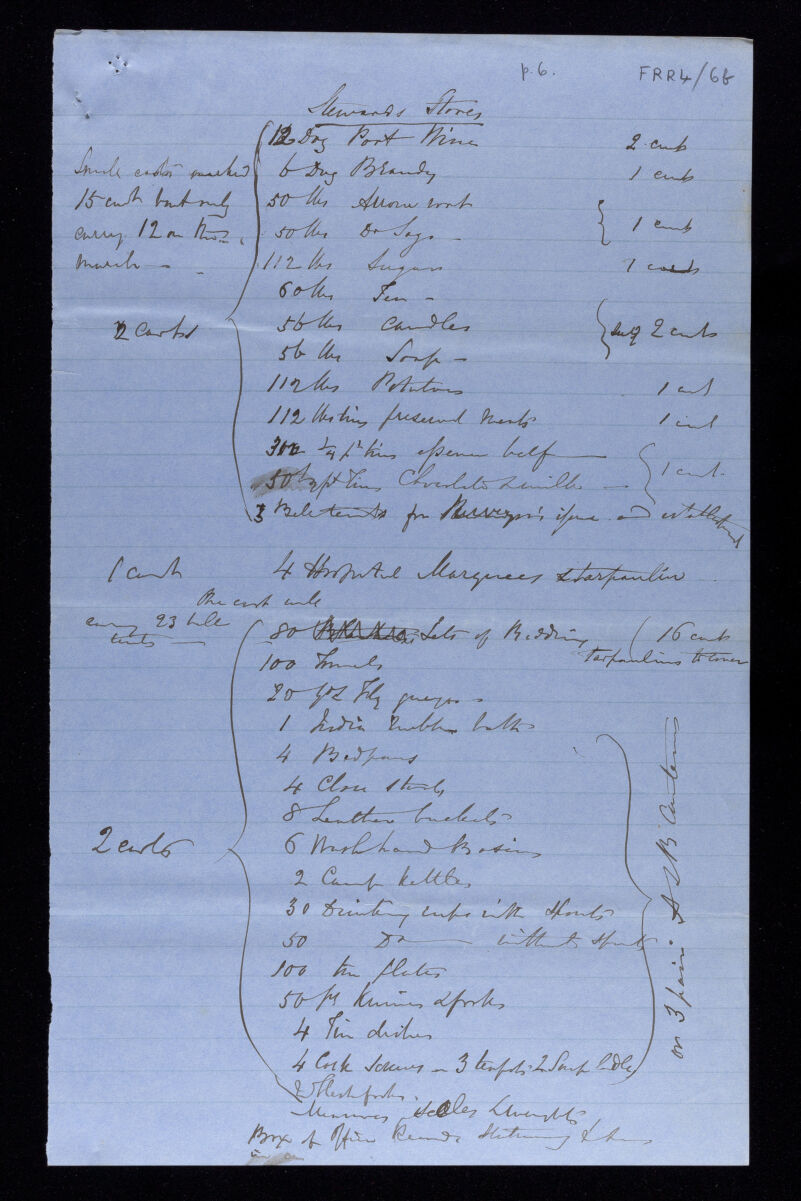 p.6. FRR4/6b
Stewards Stores
12 Doz Port Wine 2 cwt
6 Doz Brandy 1 cwt
Small carts marked
15 cwt but only
carry 12 on the
march
50 lbs Arrow root
50 lbs Do Sago 1 cwt
112 lbs Sugar 1 cwt
60 lbs Tea
2 carts
56 lbs Candles 2 cwt
56 lbs Soap
112 lbs Potatoes 1 cwt
112 lbs tins preserved meats 1 cwt
300 ¼ pt tins essence beef
50 ½ pt Tins Chocolate & milk 1 cwt
3 Bell tents for and establishment
1 cart 4 Hospital Marquees & tarpaulin
One cart will
carry 23 bell
tents
80 Sets of Bedding 16 cwt
tarpaulins to cover
100 Towels
20 yds
1 India rubber bath
4 Bedpans
4 Close stools
8 Leather buckets
2 carts
6 Washhand Basins
2 Camp Kettles
30 Drinking cups with spouts
50 Do without spouts
100 tin plates
50 pr Knives & forks
4 Tin dishes
4 Cork screws - 3 teapots 2 Soup ladles
2 Fleshforks.
Measures Scales & weights
Box of Office Records Stationery &
on 3 pair A & B Canteens